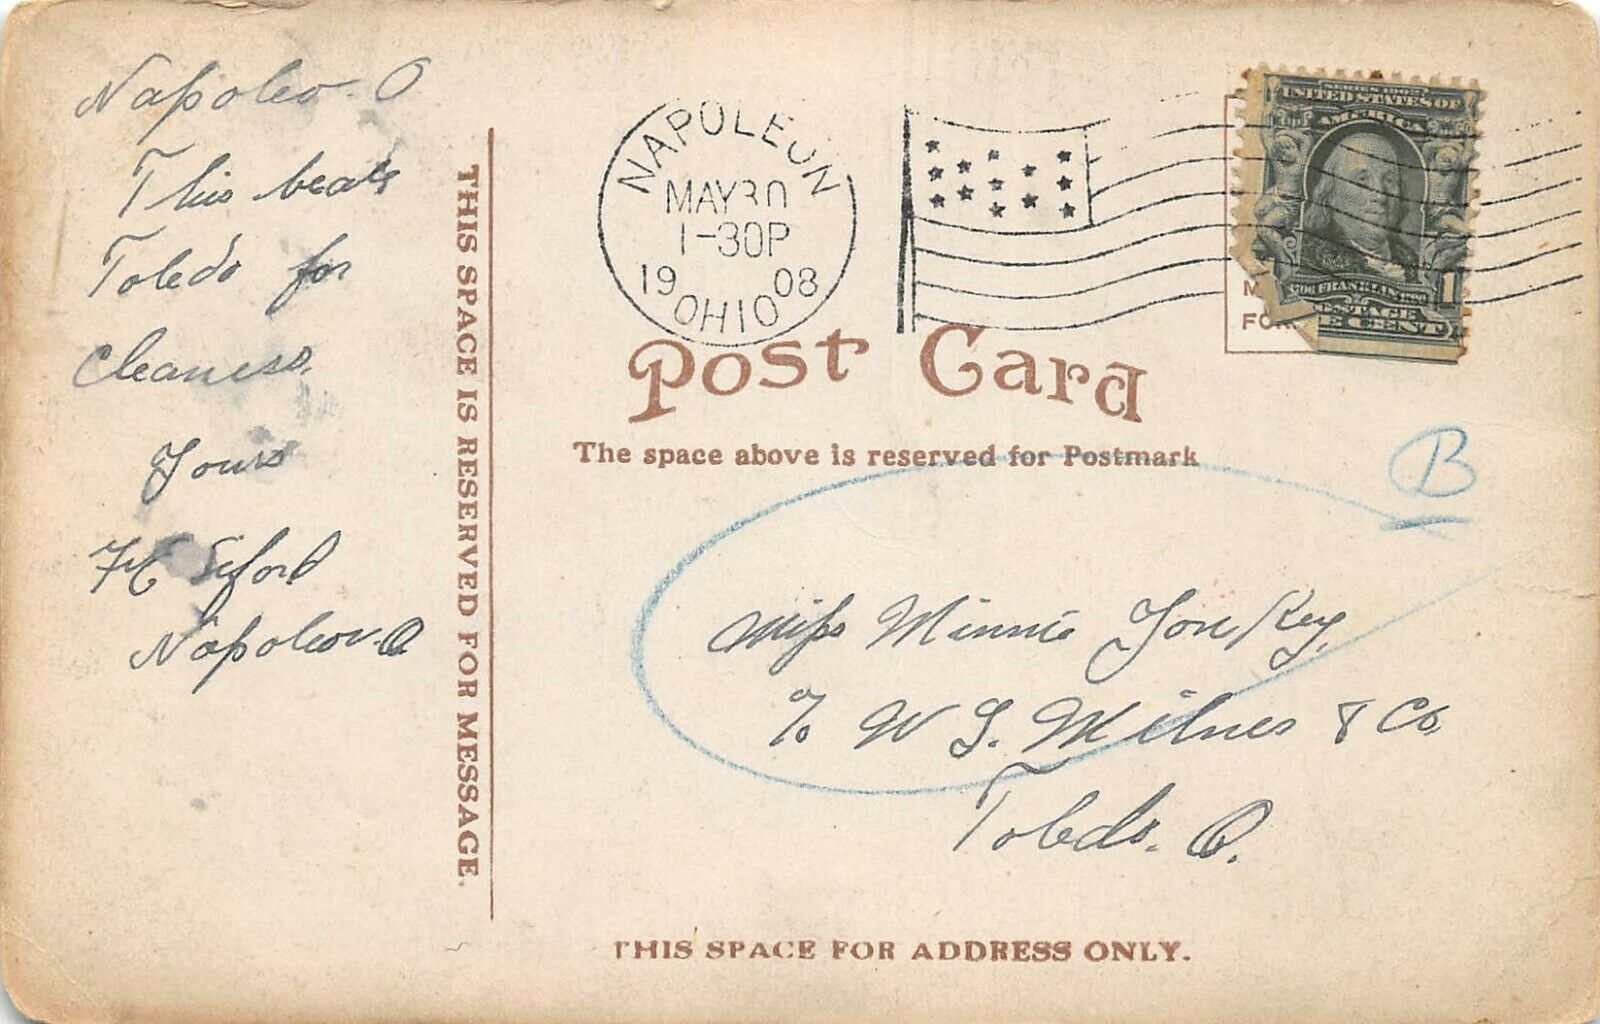 Napoleo. O
This beats
Toledo for
Cleaness.
Yours
Napoleon. O
THIS SPACE IS RESERVED FOR MESSAGE.
NAPOLEON
MAY 30
1-30P
1908
OHIO
SERIES 1902
UNITED STATES OF
AMERICA
1706 FRANKLIN 1790
POSTAGE
1
E CENT
Post Card
The space above is reserved for Postmark
B
Miss Minnie
% W S. Milnes & Co,
Toledo. O.
THIS SPACE FOR ADDRESS ONLY.